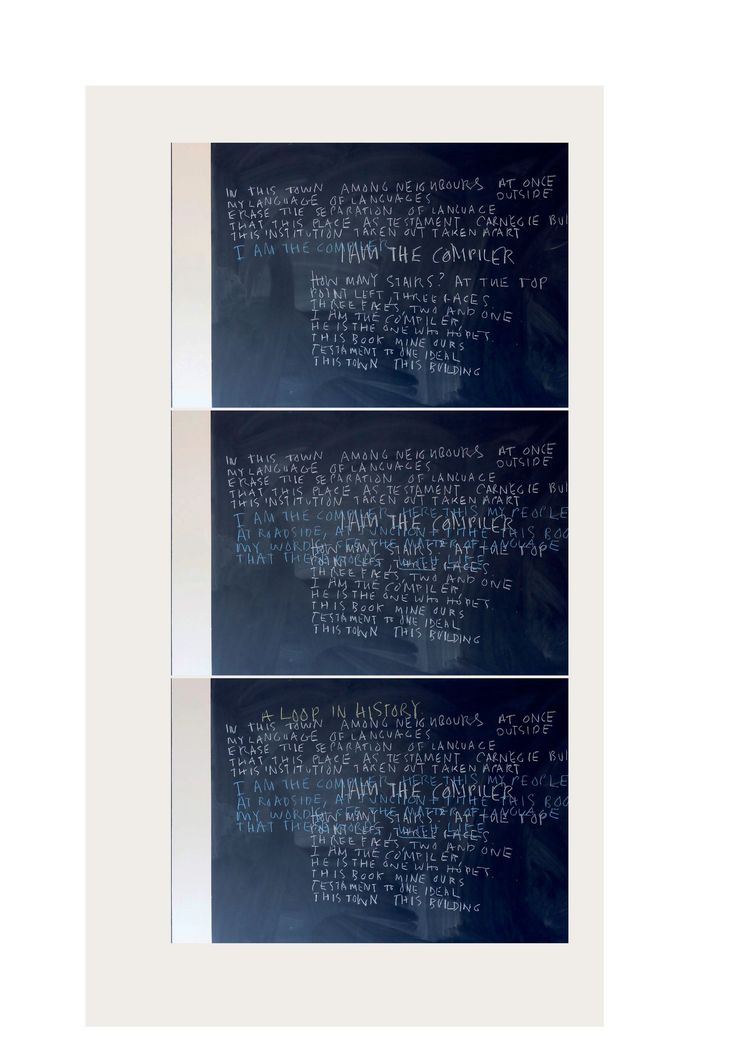 IN THIS TOWN AMONG NEIGHBOURS AT ONCE
MY LANGUAGE OF LANGUAGES OUTSIDE
ERASE THE SEPARATION OF LANGUAGE
THAT THIS PLACE AS TESTAMENT CARNEGIE BUI
THIS INSTITUTION TAKEN OUT TAKEN APART
I AM THE COMPILER
I AM THE COMPILER
HOW MANY STAIRS? AT THE TOP
POINT LEFT, THREE FACES.
THREE FACES, TWO AND ONE
I AM THE COMPILER,
HE IS THE ONE WHO HOPES.
THIS BOOK MINE OURS
TESTAMENT TO ONE IDEAL
THIS TOWN THIS BUILDING
IN THIS TOWN AMONG NEIGHBOURS AT ONCE
MY LANGUAGE OF LANGUAGES OUTSIDE
ERASE THE SEPARATION OF LANGUAGE
THAT THIS PLACE AS TESTAMENT CARNEGIE BUI
THIS INSTITUTION TAKEN OUT TAKEN APART
I AM THE COMPILER HERE THIS MY PEOPLE
I AM THE COMPILER
AT ROADSIDE, AT JUNCTION THIS BOO
MY WORD THE MATTER OF LANGUAGE
HOW MANY STAIRS? AT THE TOP
THAT THE WITH LIFE
POINT LEFT, THREE FACES
THREE FACES, TWO AND ONE
I AM THE COMPILER,
HE IS THE ONE WHO HOPES.
THIS BOOK MINE OURS
TESTAMENT TO ONE IDEAL
THIS TOWN THIS BUILDING
A LOOP IN HISTORY
IN THIS TOWN AMONG NEIGHBOURS AT ONCE
MY LANGUAGE OF LANGUAGES OUTSIDE
ERASE THE SEPARATION OF LANGUAGE
THAT THIS PLACE AS TESTAMENT CARNEGIE BUI
THIS INSTITUTION TAKEN OUT TAKEN APART
I AM THE COMPILER HERE THIS MY PEOPLE
I AM THE COMPILER
AT ROADSIDE, AT JUNCTION THIS BOO
MY WORD THE MATTER OF LANGUAGE
HOW MANY STAIRS? AT THE TOP
THAT THE WITH LIFE
POINT LEFT, THREE FACES
THREE FACES, TWO AND ONE
I AM THE COMPILER,
HE IS THE ONE WHO HOPES.
THIS BOOK MINE OURS
TESTAMENT TO ONE IDEAL
THIS TOWN THIS BUILDING